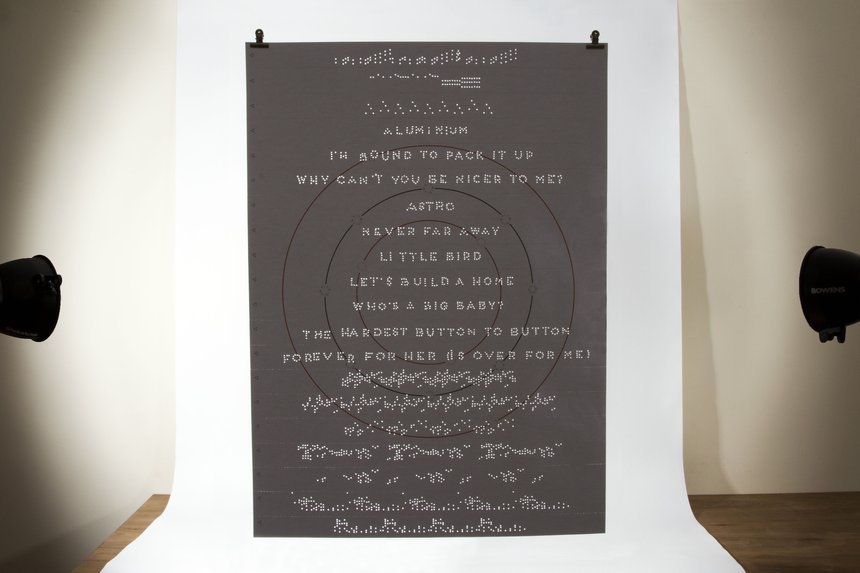 ALUMINIUM
I'M BOUND TO PACK IT UP
WHY CAN'T YOU BE NICER TO ME?
ASTRO
NEVER FAR AWAY
LITTLE BIRD
LET'S BUILD A HOME
WHO'S A BIG BABY?
THE HARDEST BUTTON TO BUTTON
FOREVER FOR HER (IS OVER FOR ME)
BOWENS